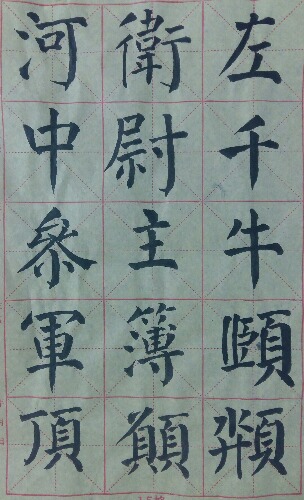 河中叅軍頂
衛尉主簿願
左千牛頤